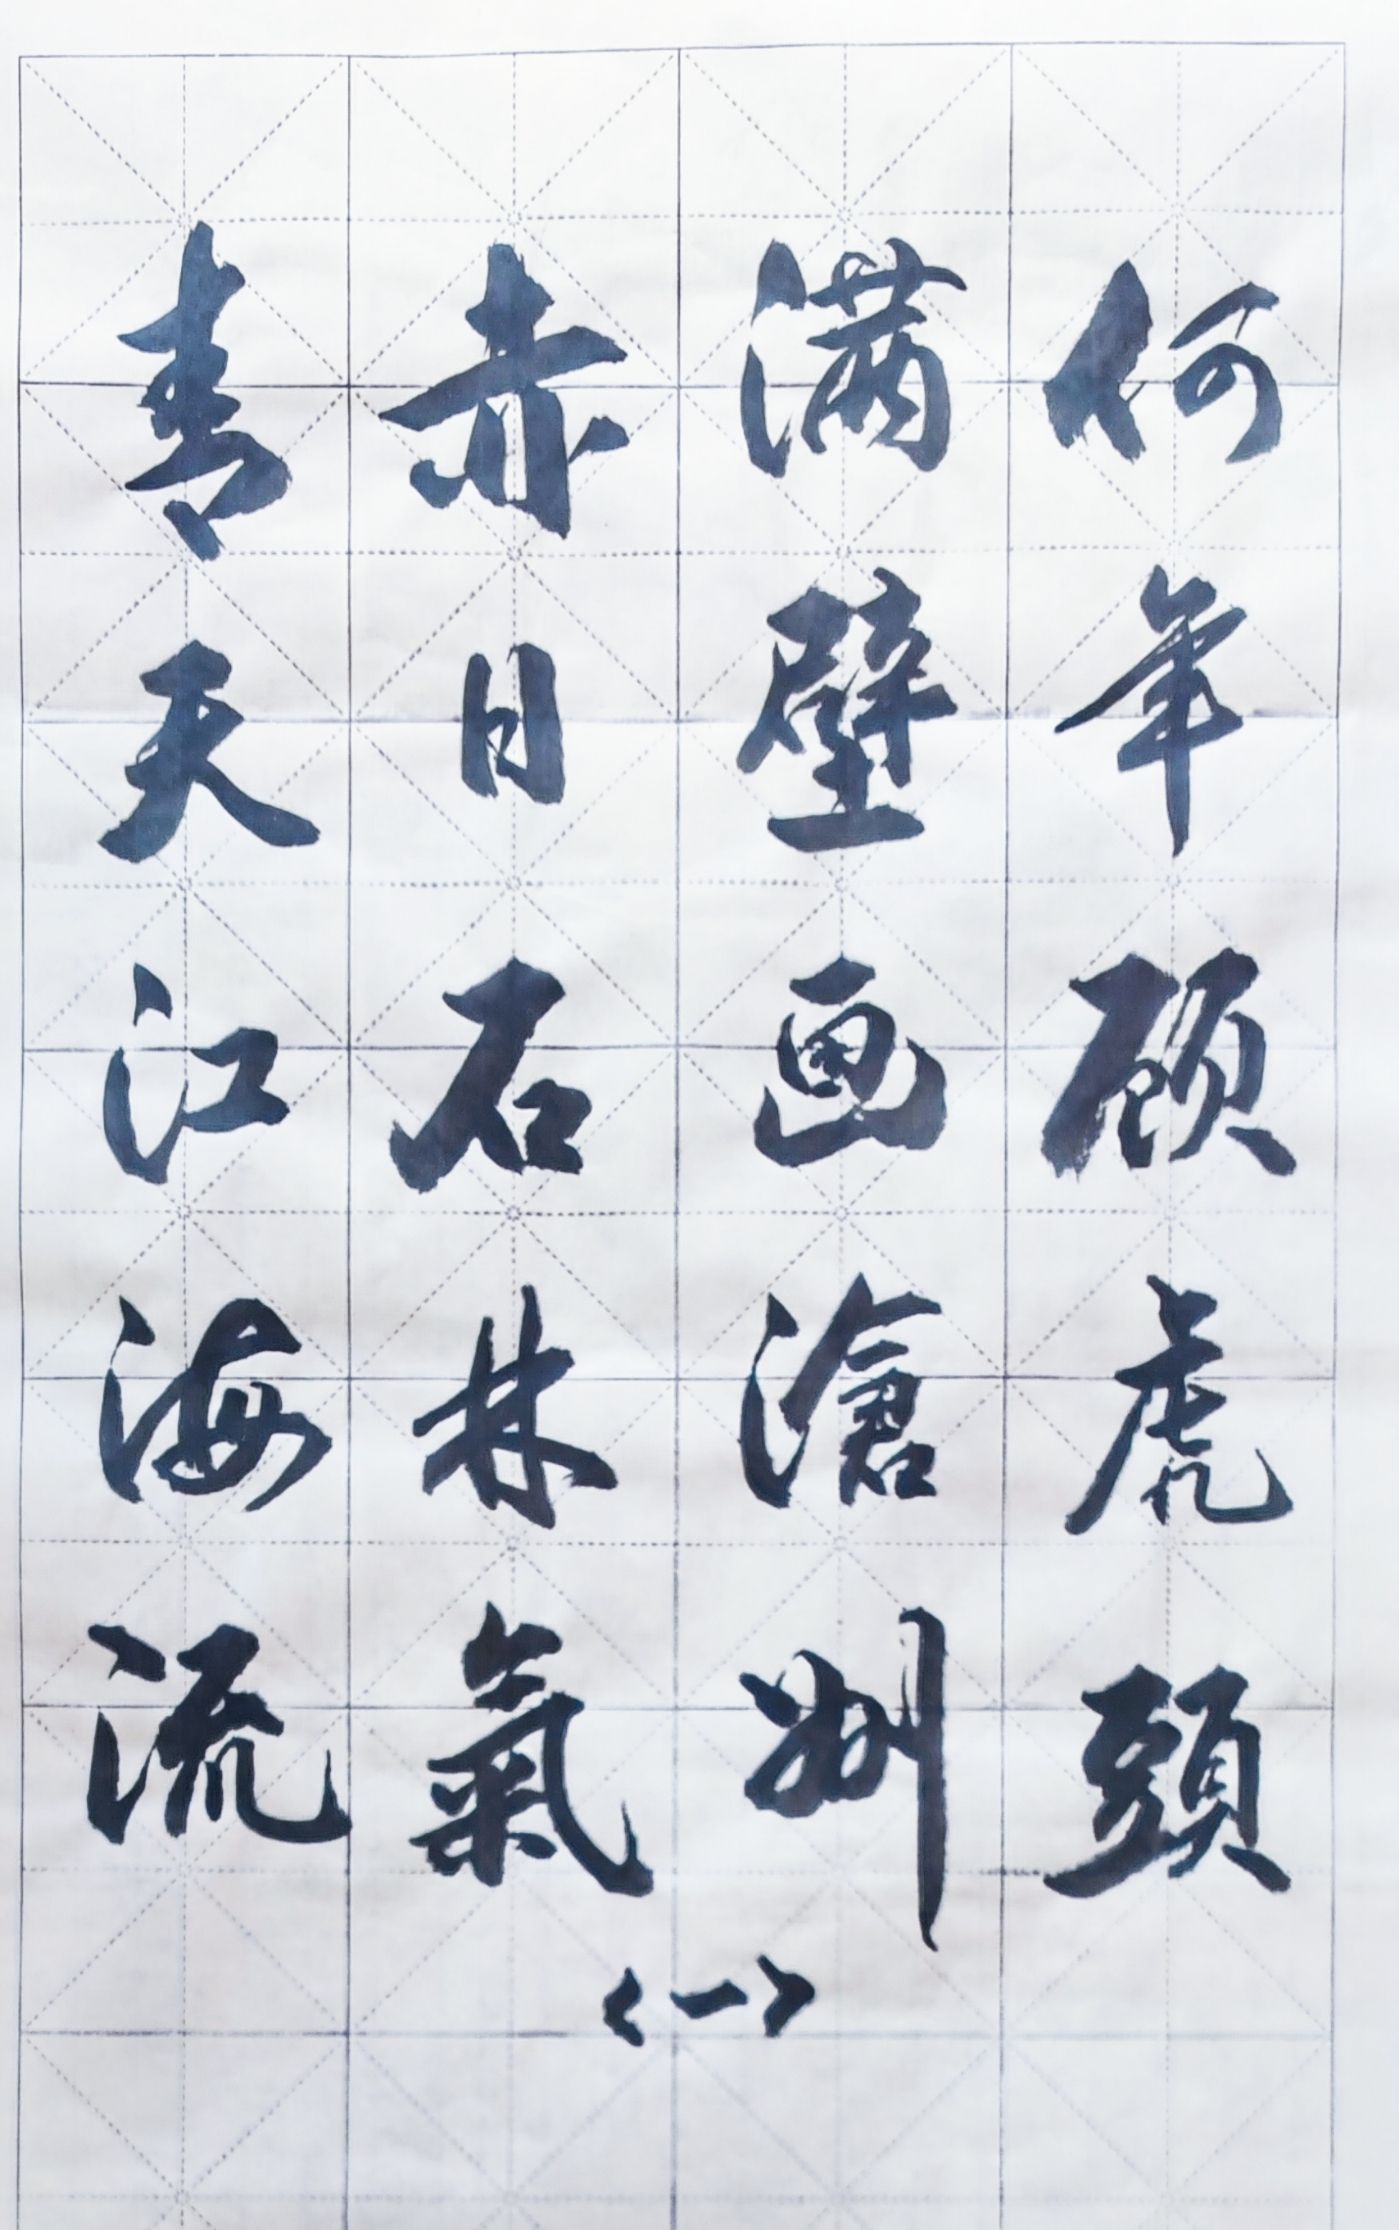 何年顾虎頭
满壁画滄洲
赤日石林氣
青天江海流
<一>